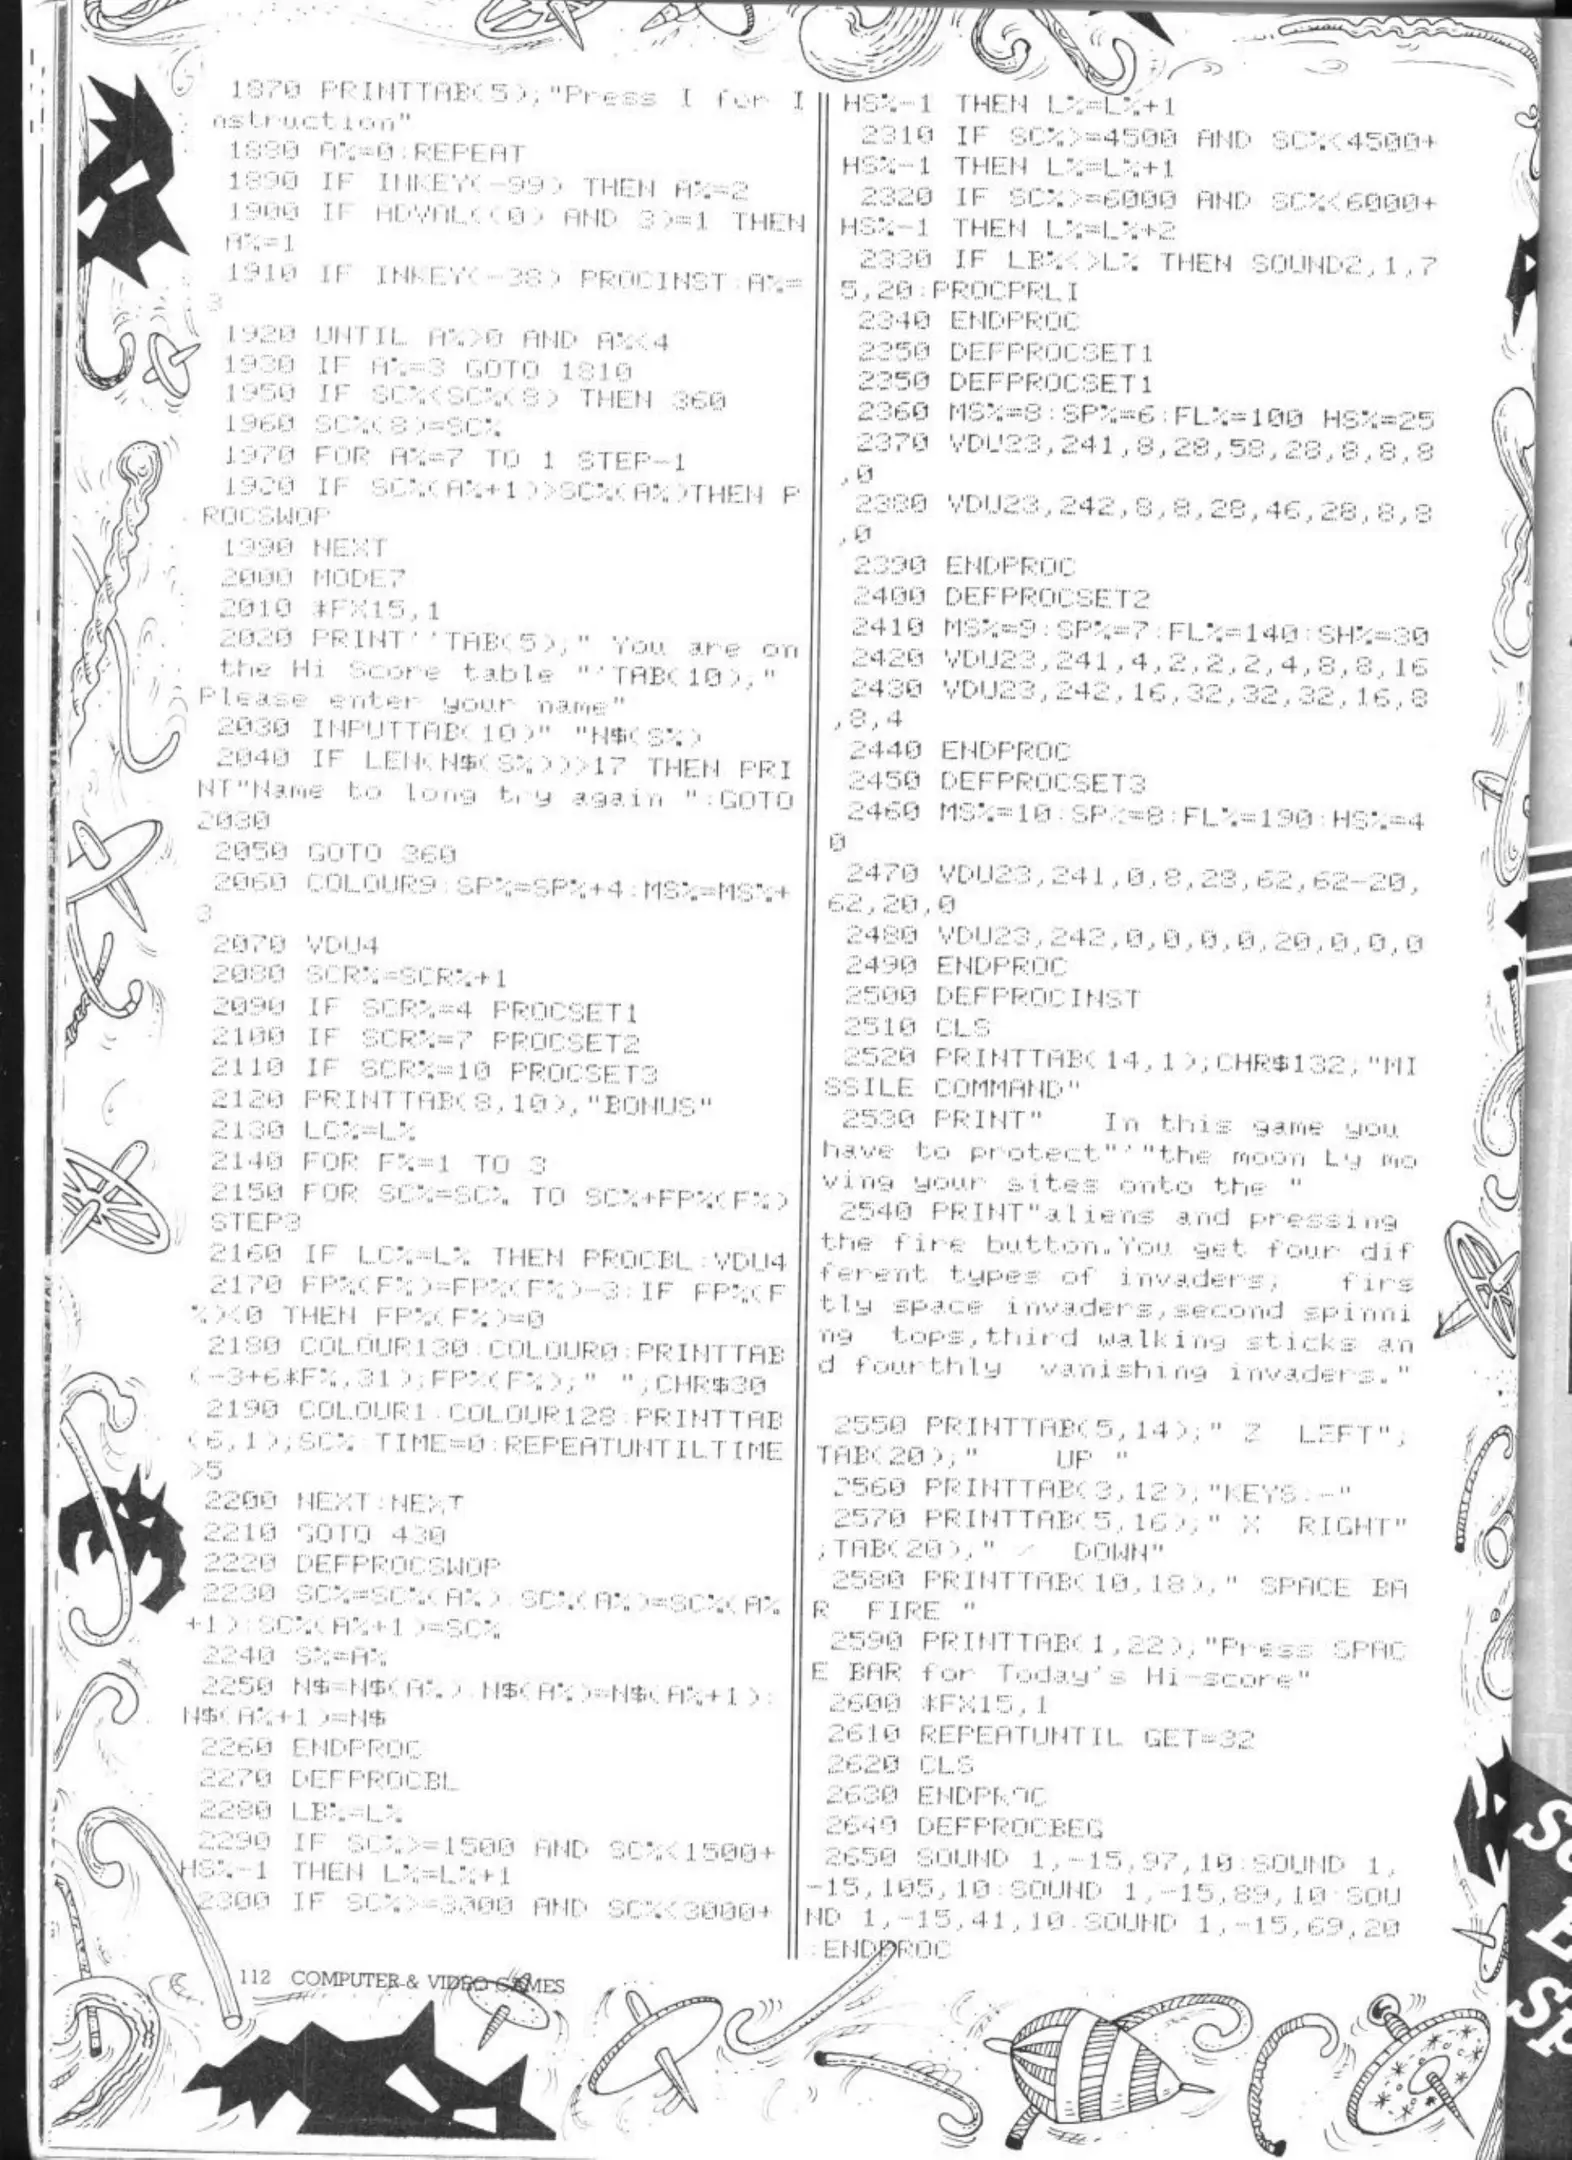 1870 PRINTTAB(5);"Press I for I
nstruction"
1880 A%=0:REPEAT
1890 IF INKEY(-99) THEN A%=2
1900 IF ADVAL((0) AND 3)=1 THEN
A%=1
1910 IF INKEY(-38) PROCINST:A%=
3
1920 UNTIL A%>0 AND A%<4
1930 IF A%=3 GOTO 1810
1950 IF SC%<SC%(8) THEN 360
1960 SC%(8)=SC%
1970 FOR A%=7 TO 1 STEP-1
1980 IF SC%(A%+1)>SC%(A%)THEN P
ROCSWOP
1990 NEXT
2000 MODE7
2010 *FX15,1
2020 PRINT''TAB(5);" You are on
the Hi Score table "'TAB(10);"
Please enter your name"
2030 INPUTTAB(10)" "N$(S%)
2040 IF LEN(N$(S%))>17 THEN PRI
NT"Name to long try again ":GOTO
2030
2050 GOTO 360
2060 COLOUR9:SP%=SP%+4:MS%=MS%+
3
2070 VDU4
2080 SCR%=SCR%+1
2090 IF SCR%=4 PROCSET1
2100 IF SCR%=7 PROCSET2
2110 IF SCR%=10 PROCSET3
2120 PRINTTAB(8,10);"BONUS"
2130 LC%=L%
2140 FOR F%=1 TO 3
2150 FOR SC%=SC% TO SC%+FP%(F%)
STEP3
2160 IF LC%=L% THEN PROCBL:VDU4
2170 FP%(F%)=FP%(F%)-3:IF FP%(F
%)<0 THEN FP%(F%)=0
2180 COLOUR130:COLOUR0:PRINTTAB
(-3+6*F%,31);FP%(F%);" ";CHR$30
2190 COLOUR1:COLOUR128:PRINTTAB
(6,1);SC%:TIME=0:REPEATUNTILTIME
>5
2200 NEXT:NEXT
2210 GOTO 430
2220 DEFPROCSWOP
2230 SC%=SC%(A%):SC%(A%)=SC%(A%
+1):SC%(A%+1)=SC%
2240 S%=A%
2250 N$=N$(A%):N$(A%)=N$(A%+1):
N$(A%+1)=N$
2260 ENDPROC
2270 DEFPROCBL
2280 LB%=L%
2290 IF SC%>=1500 AND SC%<1500+
HS%-1 THEN L%=L%+1
2300 IF SC%>=3000 AND SC%<3000+
HS%-1 THEN L%=L%+1
2310 IF SC%>=4500 AND SC%<4500+
HS%-1 THEN L%=L%+1
2320 IF SC%>=6000 AND SC%<6000+
HS%-1 THEN L%=L%+2
2330 IF LB%<>L% THEN SOUND2,1,7
5,20:PROCPRLI
2340 ENDPROC
2350 DEFPROCSET1
2350 DEFPROCSET1
2360 MS%=8:SP%=6:FL%=100 HS%=25
2370 VDU23,241,8,28,58,28,8,8,8
,0
2380 VDU23,242,8,8,28,46,28,8,8
,0
2390 ENDPROC
2400 DEFPROCSET2
2410 MS%=9:SP%=7:FL%=140:SH%=30
2420 VDU23,241,4,2,2,2,4,8,8,16
2430 VDU23,242,16,32,32,32,16,8
,8,4
2440 ENDPROC
2450 DEFPROCSET3
2460 MS%=10:SP%=8:FL%=190:HS%=4
0
2470 VDU23,241,0,8,28,62,62-20,
62,20,0
2480 VDU23,242,0,0,0,0,20,0,0,0
2490 ENDPROC
2500 DEFPROCINST
2510 CLS
2520 PRINTTAB(14,1);CHR$132;"MI
SSILE COMMAND"
2530 PRINT"    In this game you
have to protect"'"the moon by mo
ving your sites onto the "
2540 PRINT"aliens and pressing
the fire button.You get four dif
ferent types of invaders;   firs
tly space invaders,second spinni
ng  tops,third walking sticks an
d fourthly  vanishing invaders."
2550 PRINTTAB(5,14);" Z  LEFT";
TAB(20);"    UP "
2560 PRINTTAB(3,12);"KEYS:-"
2570 PRINTTAB(5,16);" X  RIGHT"
;TAB(20);" /  DOWN"
2580 PRINTTAB(10,18);" SPACE BA
R  FIRE "
2590 PRINTTAB(1,22);"Press SPAC
E BAR for Today's Hi-score"
2600 *FX15,1
2610 REPEATUNTIL GET=32
2620 CLS
2630 ENDPROC
2640 DEFPROCBEG
2650 SOUND 1,-15,97,10:SOUND 1,
-15,105,10:SOUND 1,-15,89,10:SOU
ND 1,-15,41,10:SOUND 1,-15,69,20
:ENDPROC
112 COMPUTER & VIDEO GAMES